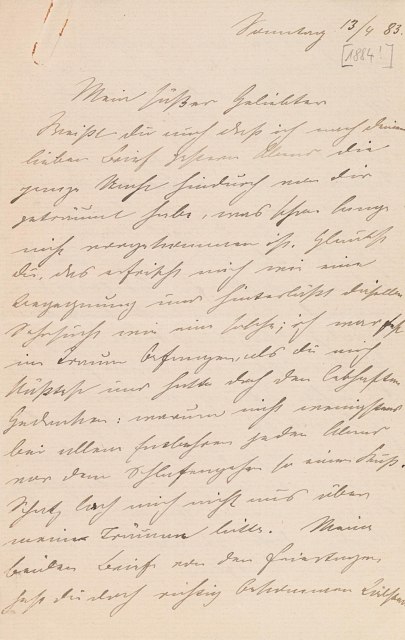 Sonntag 13/4 83.
[1884!]
Mein süßer Geliebter
Weißt du auch daß ich nach deinem
lieben Brief gestern Abend die
ganze Nacht hindurch von dir
geträumt habe, was schon lange
nicht vorgekommen ist. Glaubst
du, das erfrischt mich wie eine
Begegnung und hinterläßt dieselben
Sehnsucht wie eine solche; ich war fest
im Traum befangen, als du mich
küßtest und hatte doch den lebhaften
Gedanken: warum nicht wenigstens
bei allem Entbehren jeden Abend
vor dem Schlafengehen so einen Kuß.
Schatz lach mich nicht aus über
meine Träume bitte. Meine
beiden Briefe von den Feiertagen
hast du doch richtig bekommen